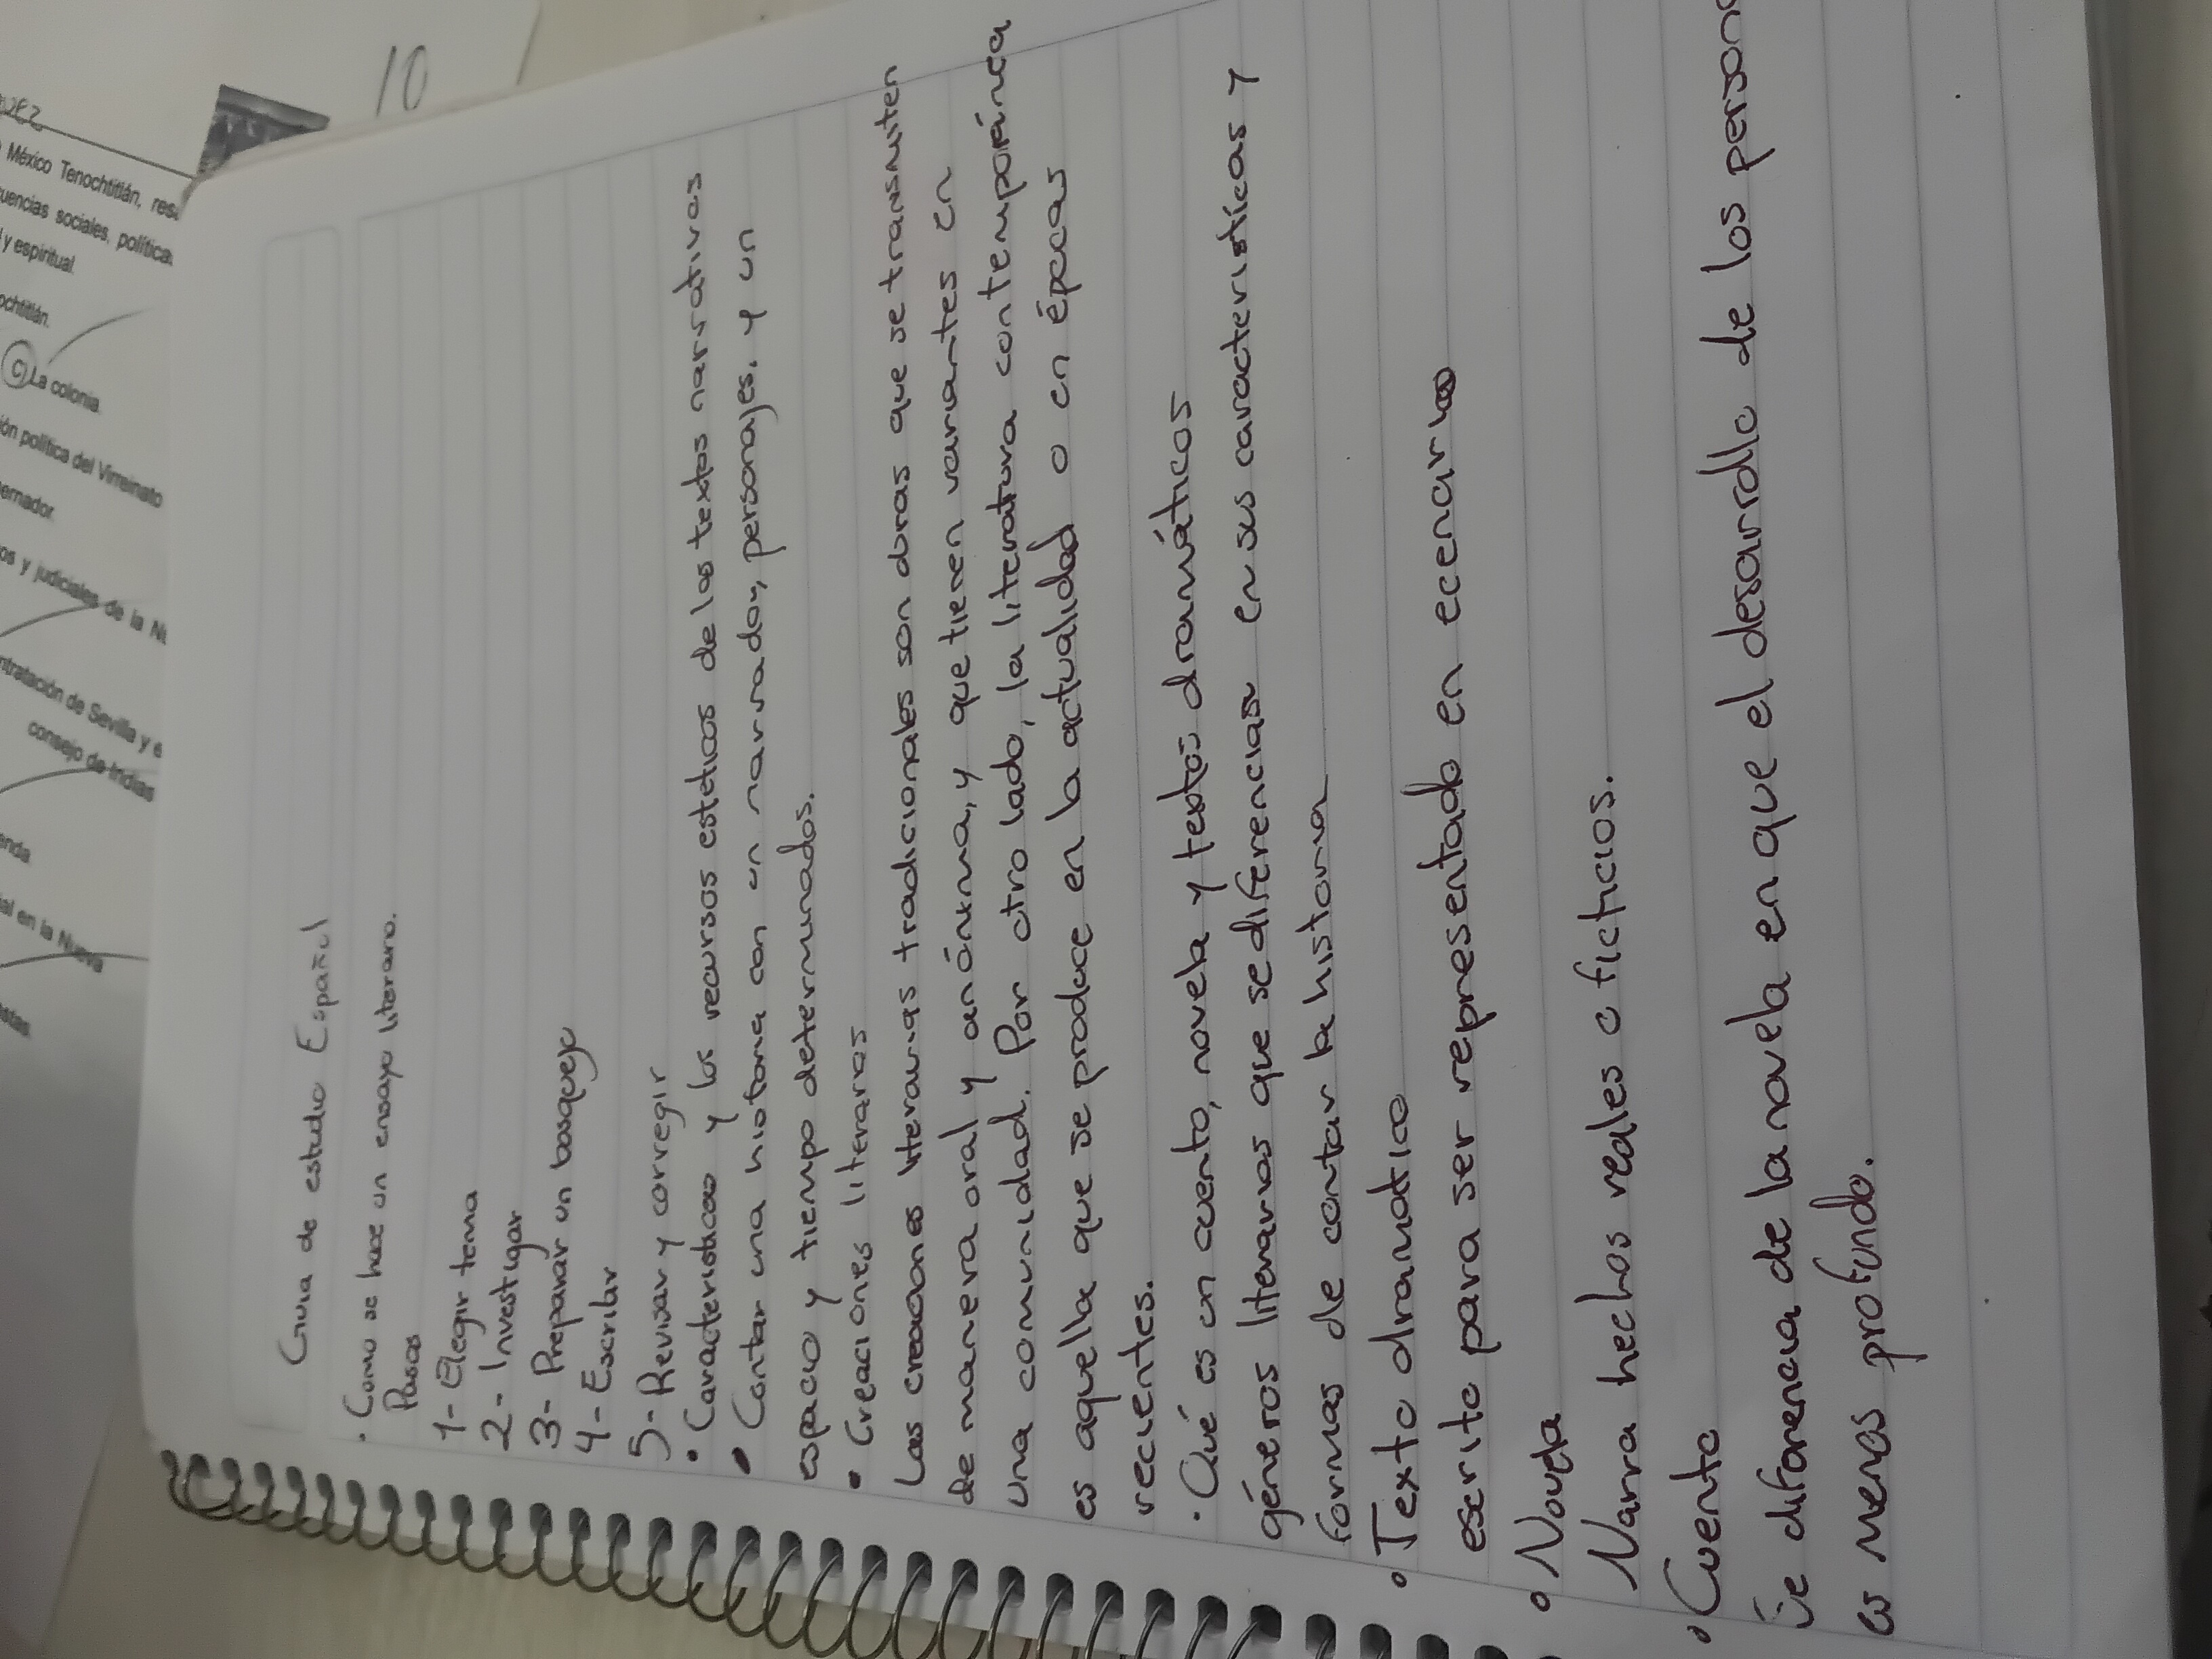 Guia de estudio Español
• Como se hace un ensayo literario.
Pasos
1- Elegir tema
2- Investigar
3- Preparar un bosquejo
4- Escribir
5- Revisar y corregir
• Caracteristicas y los recursos esteticos de los textos narrativos
• Contar una historia con un narrador, personajes, y un
espacio y tiempo determinados.
• Creaciones literarias
Las creaciones literarias tradicionales son obras que se transmiten
de manera oral y anónima, y que tienen variantes en
una comunidad. Por otro lado, la literatura contemporánea
es aquella que se produce en la actualidad o en épocas
recientes.
• Qué es un cuento, novela y textos dramáticos
géneros literarios que se diferencian en sus características y
formas de contar la historia
• Texto dramatico
escrito para ser representado en ecenarios
• Novela
Narra hechos reales o ficticios.
• Cuento
Se diferencia de la novela en que el desarrollo de los person
es menos profundo.
10
UEZ
México Tenochtitlán, res
uencias sociales, política
l y espiritual.
ochtitlán.
C) La colonia.
ión política del Virreinato
ernador.
os y judiciales de la Nu
ntratación de Sevilla y e
consejo de Indias
enda
al en la Nueva
stas